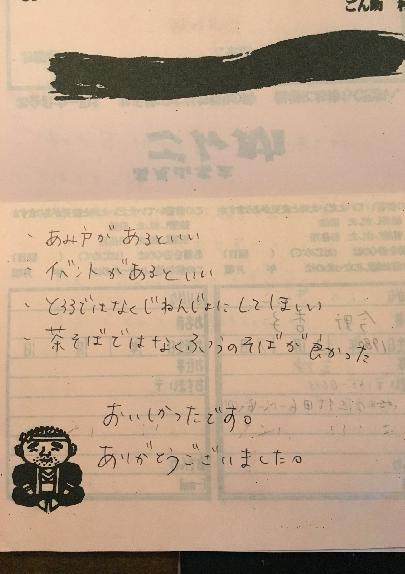 ごん助
・あみ戸があるといい
・イベントがあるといい
・とろろではなくじねんじょにしてほしい
・茶そばではなくふつうのそばが良かった
おいしかったです。
ありがとうございました。